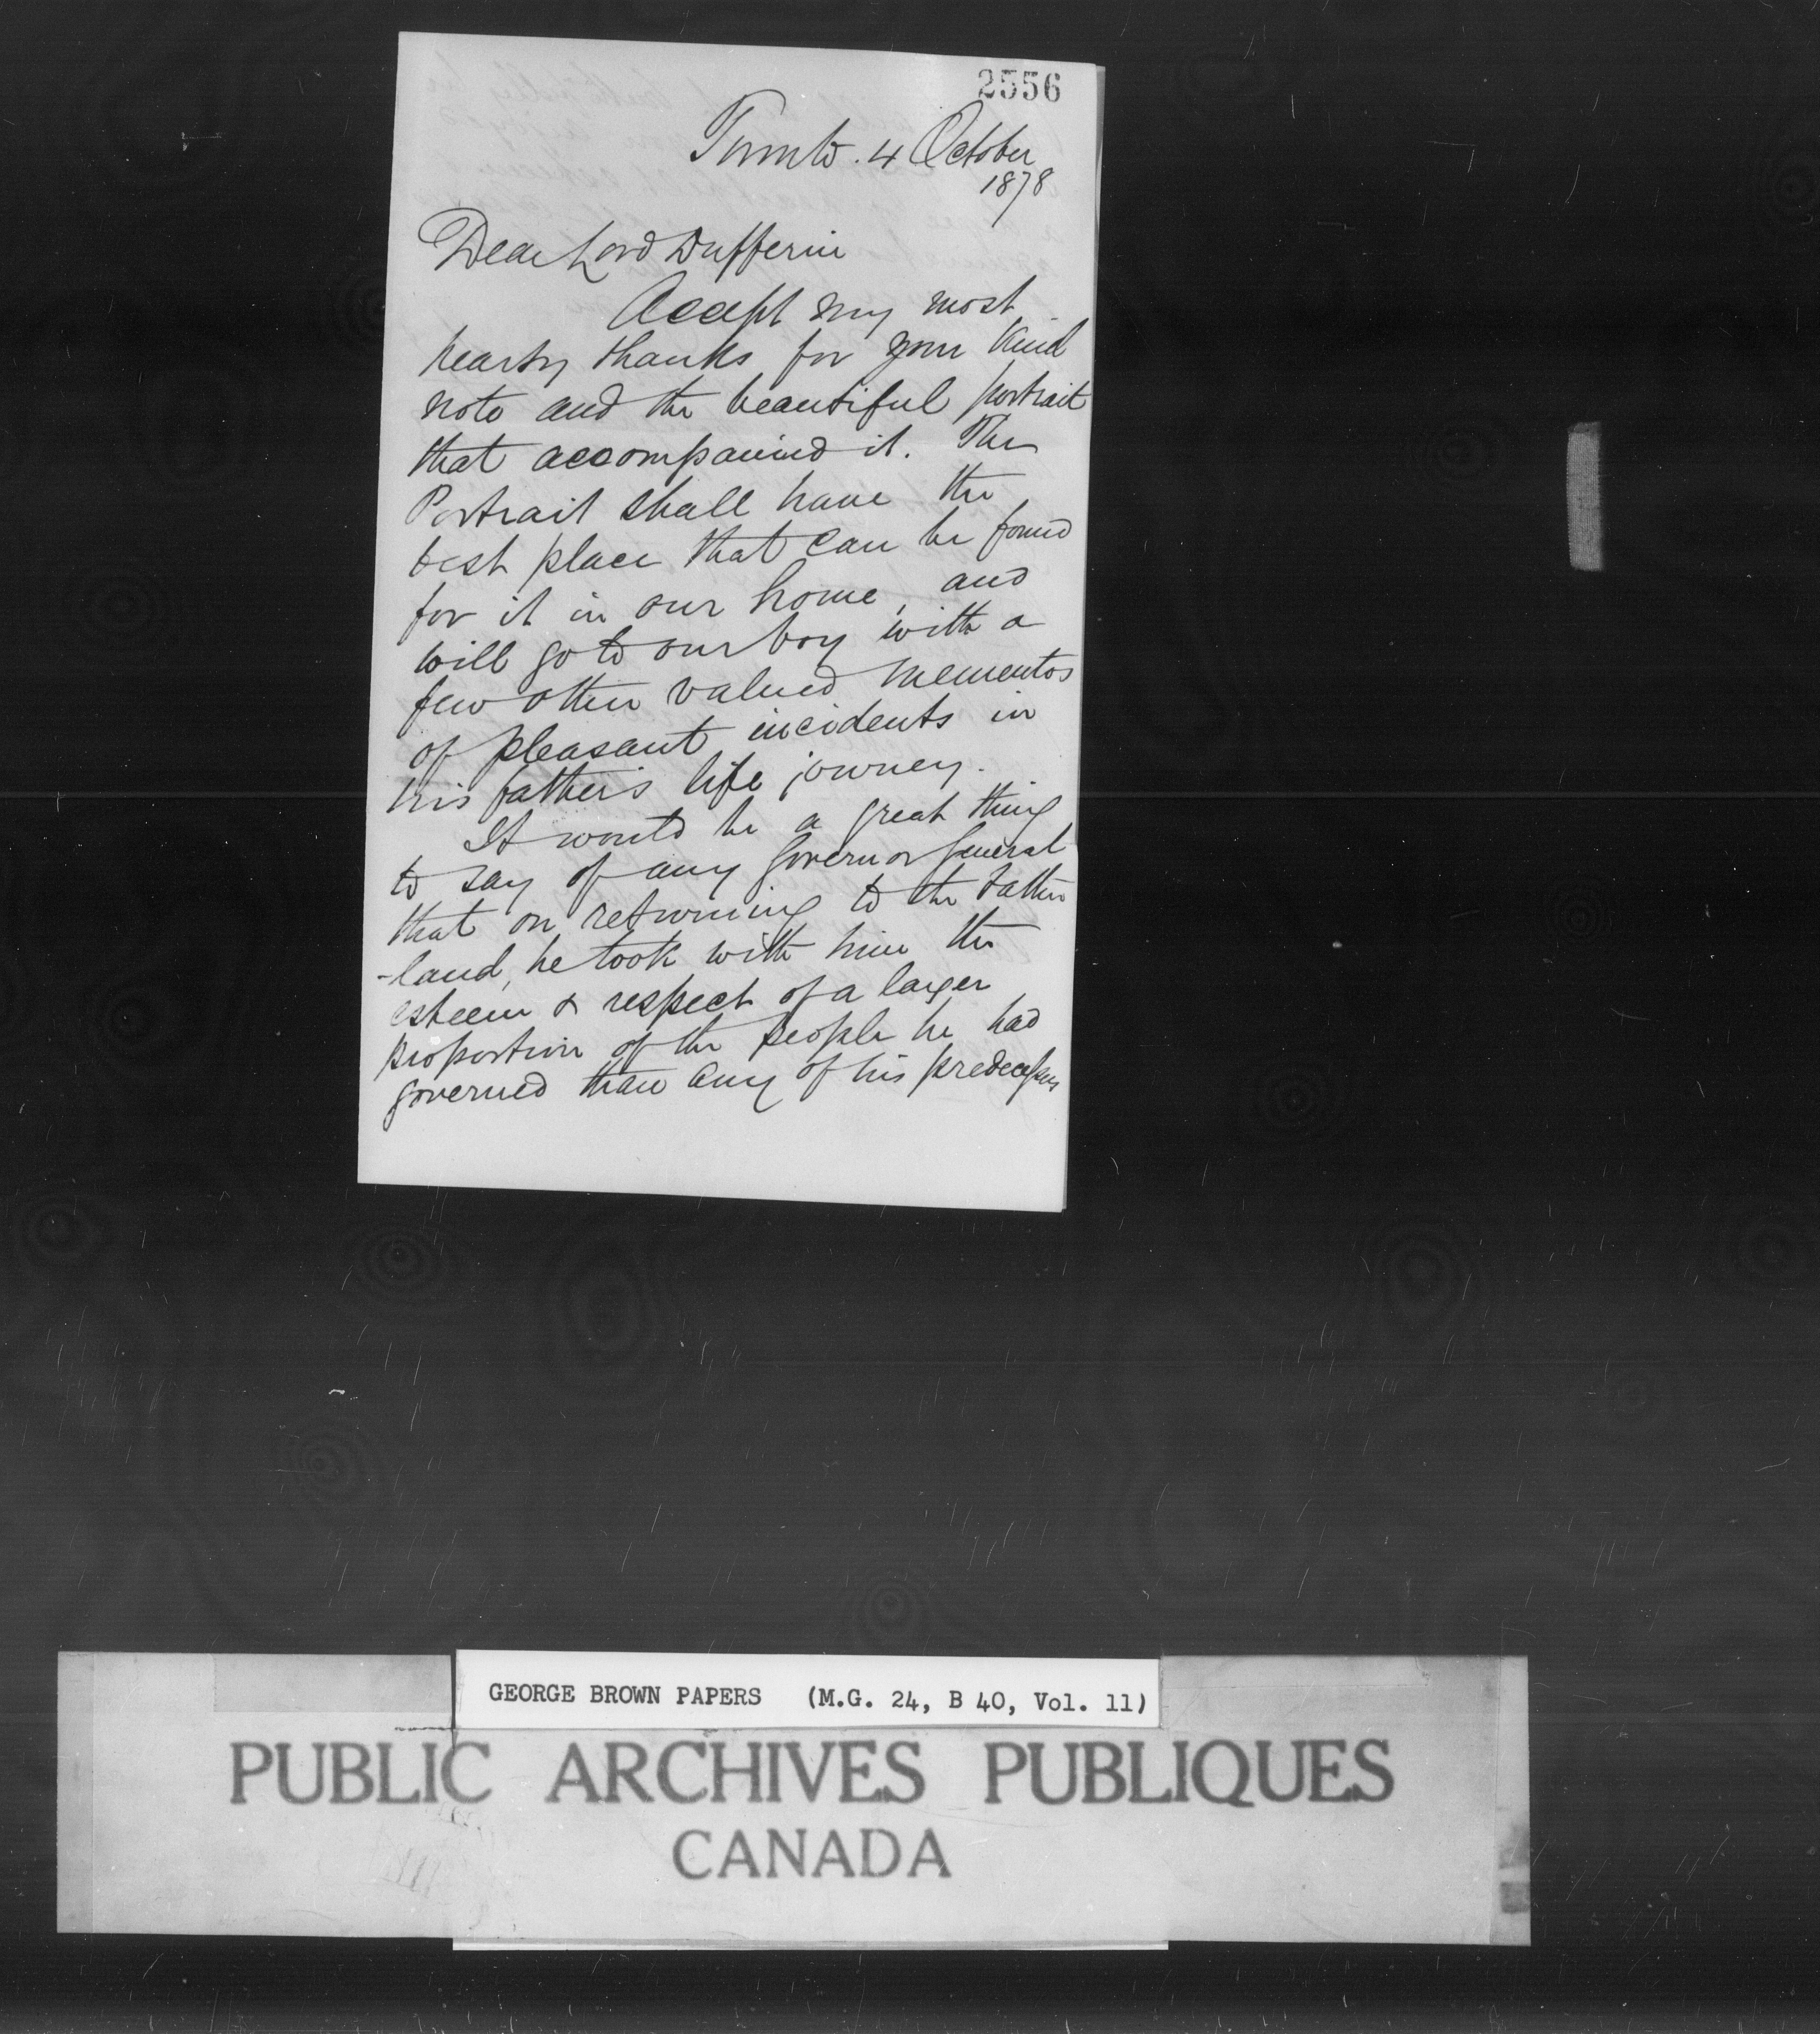 2556
Toronto. 4 October
1878
Dear Lord Dufferin
Accept my most
hearty thanks for your kind
note and the beautiful portrait
that accompanied it. The
Portrait shall have the
best place that can be found
for it in our home, and
will go to our boy with a
few other valued mementos
of pleasant incidents in
his father's life journey.
It would be a great thing
to say of any Governor General
that on returning to the Father
-land, he took with him the
esteem & respect of a larger
proportion of the people he had
governed than any of his predecessors
GEORGE BROWN PAPERS (M.G. 24, B 40, Vol. 11)
PUBLIC ARCHIVES PUBLIQUES
CANADA